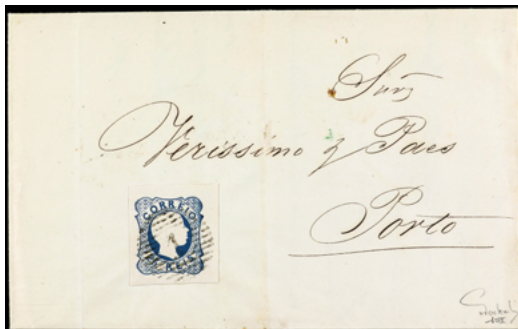 Verissimo y Paes
Porto
CORREIO
REIS